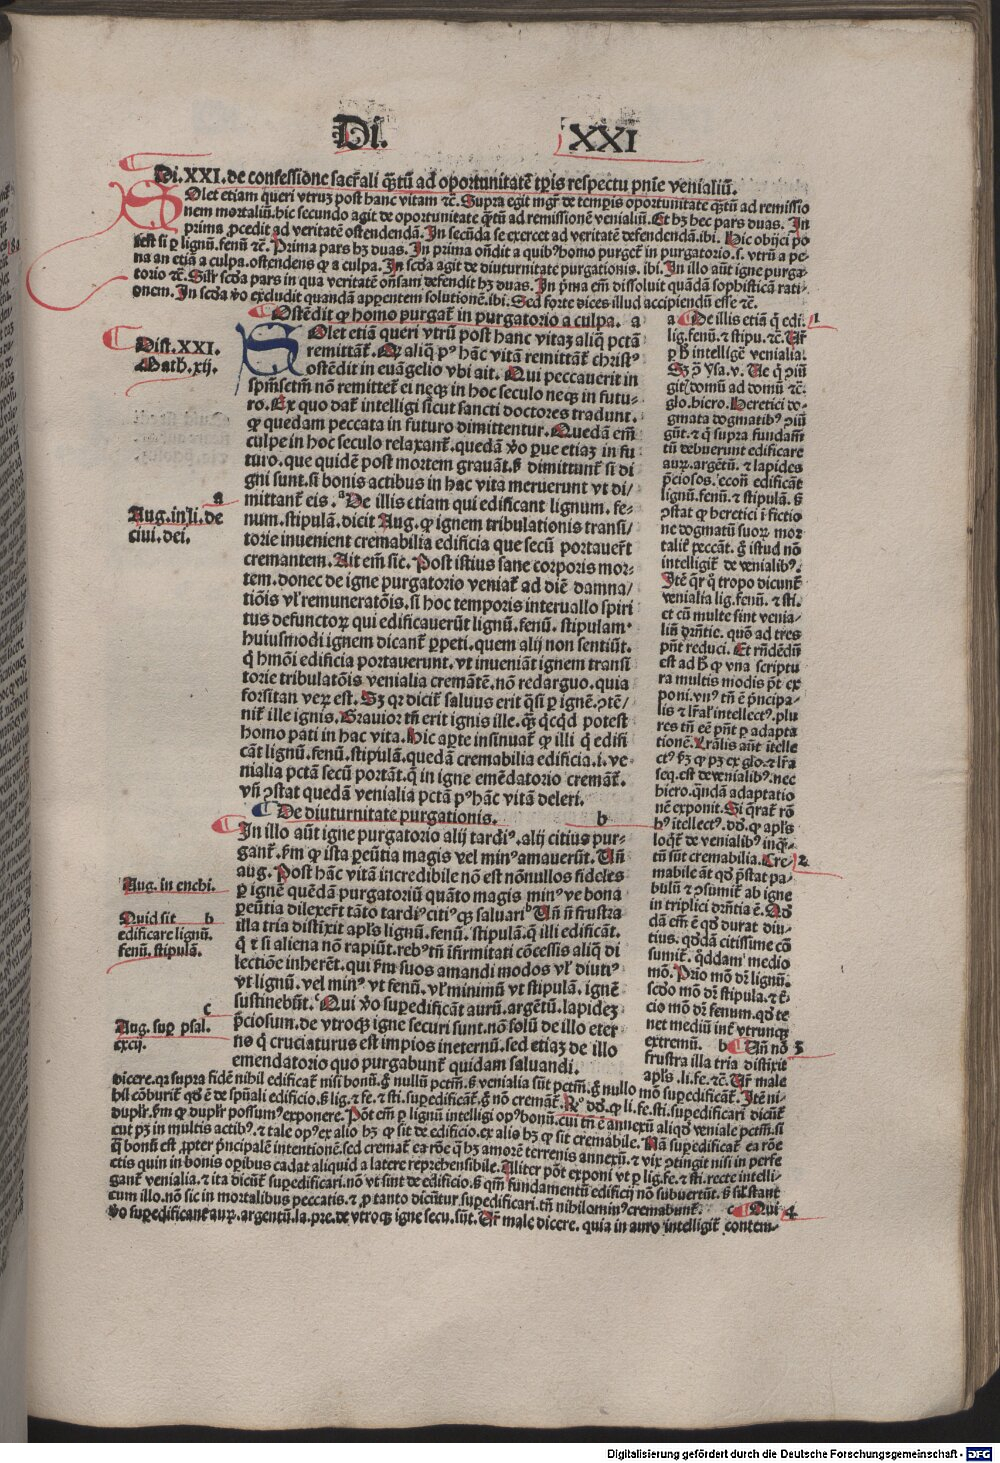 Di. XXI
Di.XXI.de confessione sacr̄ali q̄ꝫtū ad oportunitatē tp̄is respectu pn̄ie venialiū.
SOlet etiam queri vtruꝫ post hanc vitam ⁊c̄. Supra egit mgr̄ de temp̄is oportunitate q̄ꝫtū ad remissio
nem mortaliū.hic secundo agit de oportunitate q̄ꝫtū ad remissionē venialiū. Et hꝫ hec pars duas. In
prima ꝓcedit ad veritatē ostendendā. In secūda se exercet ad veritatē defendendā.ibi. Hic obijci po
test si ꝑ lignū.fenū ⁊c̄. Prima pars hꝫ duas. In prima on̄dit a quibꝰ homo purget̄ in purgatorio.s. vtrū a pe-
na an etiā a culpa.ostendens ꝙ a culpa. In scd̄a agit de diuturnitate purgationis. ibi. In illo aūt igne purga-
torio ⁊c̄. Silr̄ scd̄a pars in qua veritatē on̄sam defendit hꝫ duas. In p̄ma em̄ dissoluit quādā sophisticā rati-
onem. In scd̄a v̄o excludit quandā apparentem solutionē.ibi. Sed forte dices illud accipiendū esse ⁊c̄.
Ostēdit ꝙ homo purgat̄ in purgatorio a culpa. a
Dist.XXI.
Math.xij.
SOlet etiā queri vtrū post hanc vitaꝫ aliq̄ pctā
remittāt̄. Qꝛ aliq̄ pꝰ hāc vitā remittāt̄ christꝰ
ostēdit in euāgelio vbi ait. Qui peccauerit in
sp̄m sctm̄ nō remittet̄ ei neqꝫ in hoc seculo neqꝫ in futu-
ro. Ex quo dat̄ intelligi sicut sancti doctores tradunt.
ꝙ quedam peccata in futuro dimittentur. Quedā em̄
culpe in hoc seculo relaxant̄. quedā v̄o ꝑue etiaꝫ in fu
turo.que quidē post mortem grauāt.ꝭ dimittunt̄ si di
gni sunt.si bonis actibus in hac vita meruerunt vt di/
mittant̄ eis. ªDe illis etiam qui edificant lignum. fe-
a
Aug.in li.de
ciui.dei.
num.stipulā.dicit Aug.ꝙ ignem tribulationis transi/
torie inuenient cremabilia edificia que secū portauer̄t
cremantem. Ait em̄ sic. Post istius sane corporis mor-
tem.donec de igne purgatorio veniat̄ ad diē damna/
tiōis vl̓ remuneratōis.si hoc temporis interuallo spiri
tus defunctorꝫ qui edificauerūt lignū.fenū. stipulam.
huiusmodi ignem dicant̄ ꝑpeti.quem alij non sentiūt.
q̄ hmōi edificia portauerunt.vt inueniāt ignem transi
torie tribulatōis venialia cremātē.nō redarguo.quia
forsitan verꝫ est. Sꝫ qꝛ dicit̄ saluus erit q̄si ꝑ ignē.ↄtē/
nit̄ ille ignis. Grauior tn̄ erit ignis ille. q̄ꝫ qͥcqͥd potest
homo pati in hac vita. Hic aꝑte insinuat̄ ꝙ illi q̄ edifi
cāt lignū.fenū.stipulā.quedā cremabilia edificia.i.ve-
nialia pctā secū portāt.q̄ in igne emēdatorio cremāt̄.
Vn̄ ↄstat quedā venialia pctā pꝰ hāc vitā deleri.
De diuturnitate purgationis. b
In illo aūt igne purgatorio alij tardiꝰ.alij citius pur-
gant̄.ẜm ꝙ ista ꝑeūtia magis vel minꝰ amauerūt. Vn̄
aug. Post hāc vitā incredibile nō est nōnullos fideles
Aug. in enchi.
ꝑ ignē quēdā purgatoriū quāto magis minꝰ ve bona
ꝑeūtia dilexer̄t tāto tardiꝰ citiꝰ qꝫ saluari ᵇ Vn̄ n̄ frustra
Quid sit b
edificare lignū.
fenū.stipulā.
illa tria distīxit apl̓s lignū.fenū. stipulā.q̄ illi edificāt.
q̄ ⁊ si aliena nō rapiūt.rebꝰ tn̄ īfirmitati cōcessis aliq̄ di
lectiōe inherēt.qui ẜm suos amandi modos vl̓ diutiꝰ
vt lignū.vel minꝰ vt fenū.vl̓ minimū vt stipulā. ignē
sustinebūt. ᶜQui v̄o suꝑedificāt aurū.argētū.lapideꝫ
c
Aug. suꝑ psal.
cxcij.
p̄ciosum.de vtroqꝫ igne securi sunt.nō solū de illo eter
no q̄ cruciaturus est impios ineternū.sed etiaꝫ de illo
emendatorio quo purgabunt̄ quidam saluandi.
a De illis etiā q̄ edi. 1
lig.fenū.⁊ stipu.⁊c̄. Vr̄
ꝑ B intelligē venialia.
Sꝫ ꝯ ysa.v. Ve q̄ ꝯiū
git̄ domū ad domū ⁊c̄
glo.hiero. Heretici do-
gmata dogmatibꝰ ꝯiū
gūt.⁊ q̄ supra fundam̄
tū debuerunt edificare
aurꝫ.argētū.⁊ lapides
p̄ciosos.ecōn̄ edificāt
lignū.fenū.⁊ stipulā.ꝭ
ↄstat ꝙ heretici ī fictio
ne dogmatū suorꝫ mor
talit̓ peccāt.ḡ istud nō
intelligit̄ de venialibꝰ.
Itē qr̄ q̄ tropo dicunt̄
venialia lig.fenū.⁊ sti.
et cū multe sint venia-
liū drn̄tie. quō ad tres
pn̄t reduci. Et rn̄dēdū
est ad B ꝙ vna scriptu
ra multis modis pōt ex
poni.vnꝰ tn̄ ē p̄ncipa-
lis ⁊ lr̄al̓ intellectꝰ.plu
res tn̄ eē pn̄t ꝑ adapta
tionē. Lr̄alis aūt itelle
ctꝰ ẜꝫ ꝙ pꝫ ex glo.⁊ lr̄a
seq.est de venialibꝰ.nec
hiero.q̄ndā adaptatio
nē exponit. Si q̄rat̄ rō
hꝰ itellectꝰ.dd̓.ꝙ apl̓s
loqͥt̄ de venialibꝰ inqͣ-
tū sūt cremabilia. Cre- 2
mabile āt qd̓ p̄stat pa-
bulū ⁊ ↄsumit̄ ab igne
in triplici drn̄tia ē. Qd̓
dā em̄ ē qd̓ durat diu-
tius.qd̓dā citissime cō
sumit̄.q̄ddam̄ medio
mō. Prio mō dr̄ lignū.
scd̓o mō dr̄ stipula.⁊ t̓
cio mō dr̄ fenum.qd̓ te
net mediū int̓ vtrunqꝫ
extremū. b Vn̄ nō 3
frustra illa tria distīxit
apl̓s.li.fe.⁊c̄. Vr̄ male
dicere.qꝛ supra fidē nihil edificat̄ nisi bonū.ḡ nullū pctm̄.ꝭ venialia sūt pctm̄.ḡ nullo mō suꝑedificāt̄. Itē ni-
hil cōburit̄ qd̓ ē de spūali edificio.ꝭ lig.⁊ fe.⁊ sti.suꝑedificāt̄.ḡ nō cremāt̄. Rꝰ dd̓.ꝙ li.fe.sti.suꝑedificari dicūt̄
duplr̄.ẜm ꝙ duplr̄ possumꝰ exponere. Pōt em̄ ꝑ lignū intelligi opꝰ bonū.cui tn̄ ē annexū aliqd̓ veniale pctm̄.si
cut pꝫ in multis actibꝰ.⁊ tale opꝰ ex alio hꝫ ꝙ sit de edificio.ex alio hꝫ ꝙ sit cremabile. Nā suꝑedificat̄ ea rōe
q̄ bonū est ꝓpter p̄ncipalē intentionē.sed cremat̄ ea rōe q̄ hꝫ amorē terrenis annexū.⁊ vix ↄtingit nisi in perfe
ctis quin in bonis oꝑibus cadat aliquid a latere reprehensibile. Aliter pōt exponi vt ꝑ lig.fe.⁊ sti.recte intelli-
gant̄ venialia.⁊ ita dicūt̄ suꝑedificari.nō vt sint de edificio.ꝭ qm̄ fundamentū edificij nō subuertūt.ꝭ sil̓ stant
cum illo.nō sic in mortalibus peccatis.⁊ ꝓ tanto dicūtur suꝑedificari.tn̄ nihilominꝰ cremabunt̄. c Qui 4
v̄o suꝑedificant aurꝫ.argentū.la.pre.de vtroqꝫ igne secu.sūt. Vr̄ male dicere. quia in auro intelligit̄ contem-
Digitalisierung gefördert durch die Deutsche Forschungsgemeinschaft - DFG